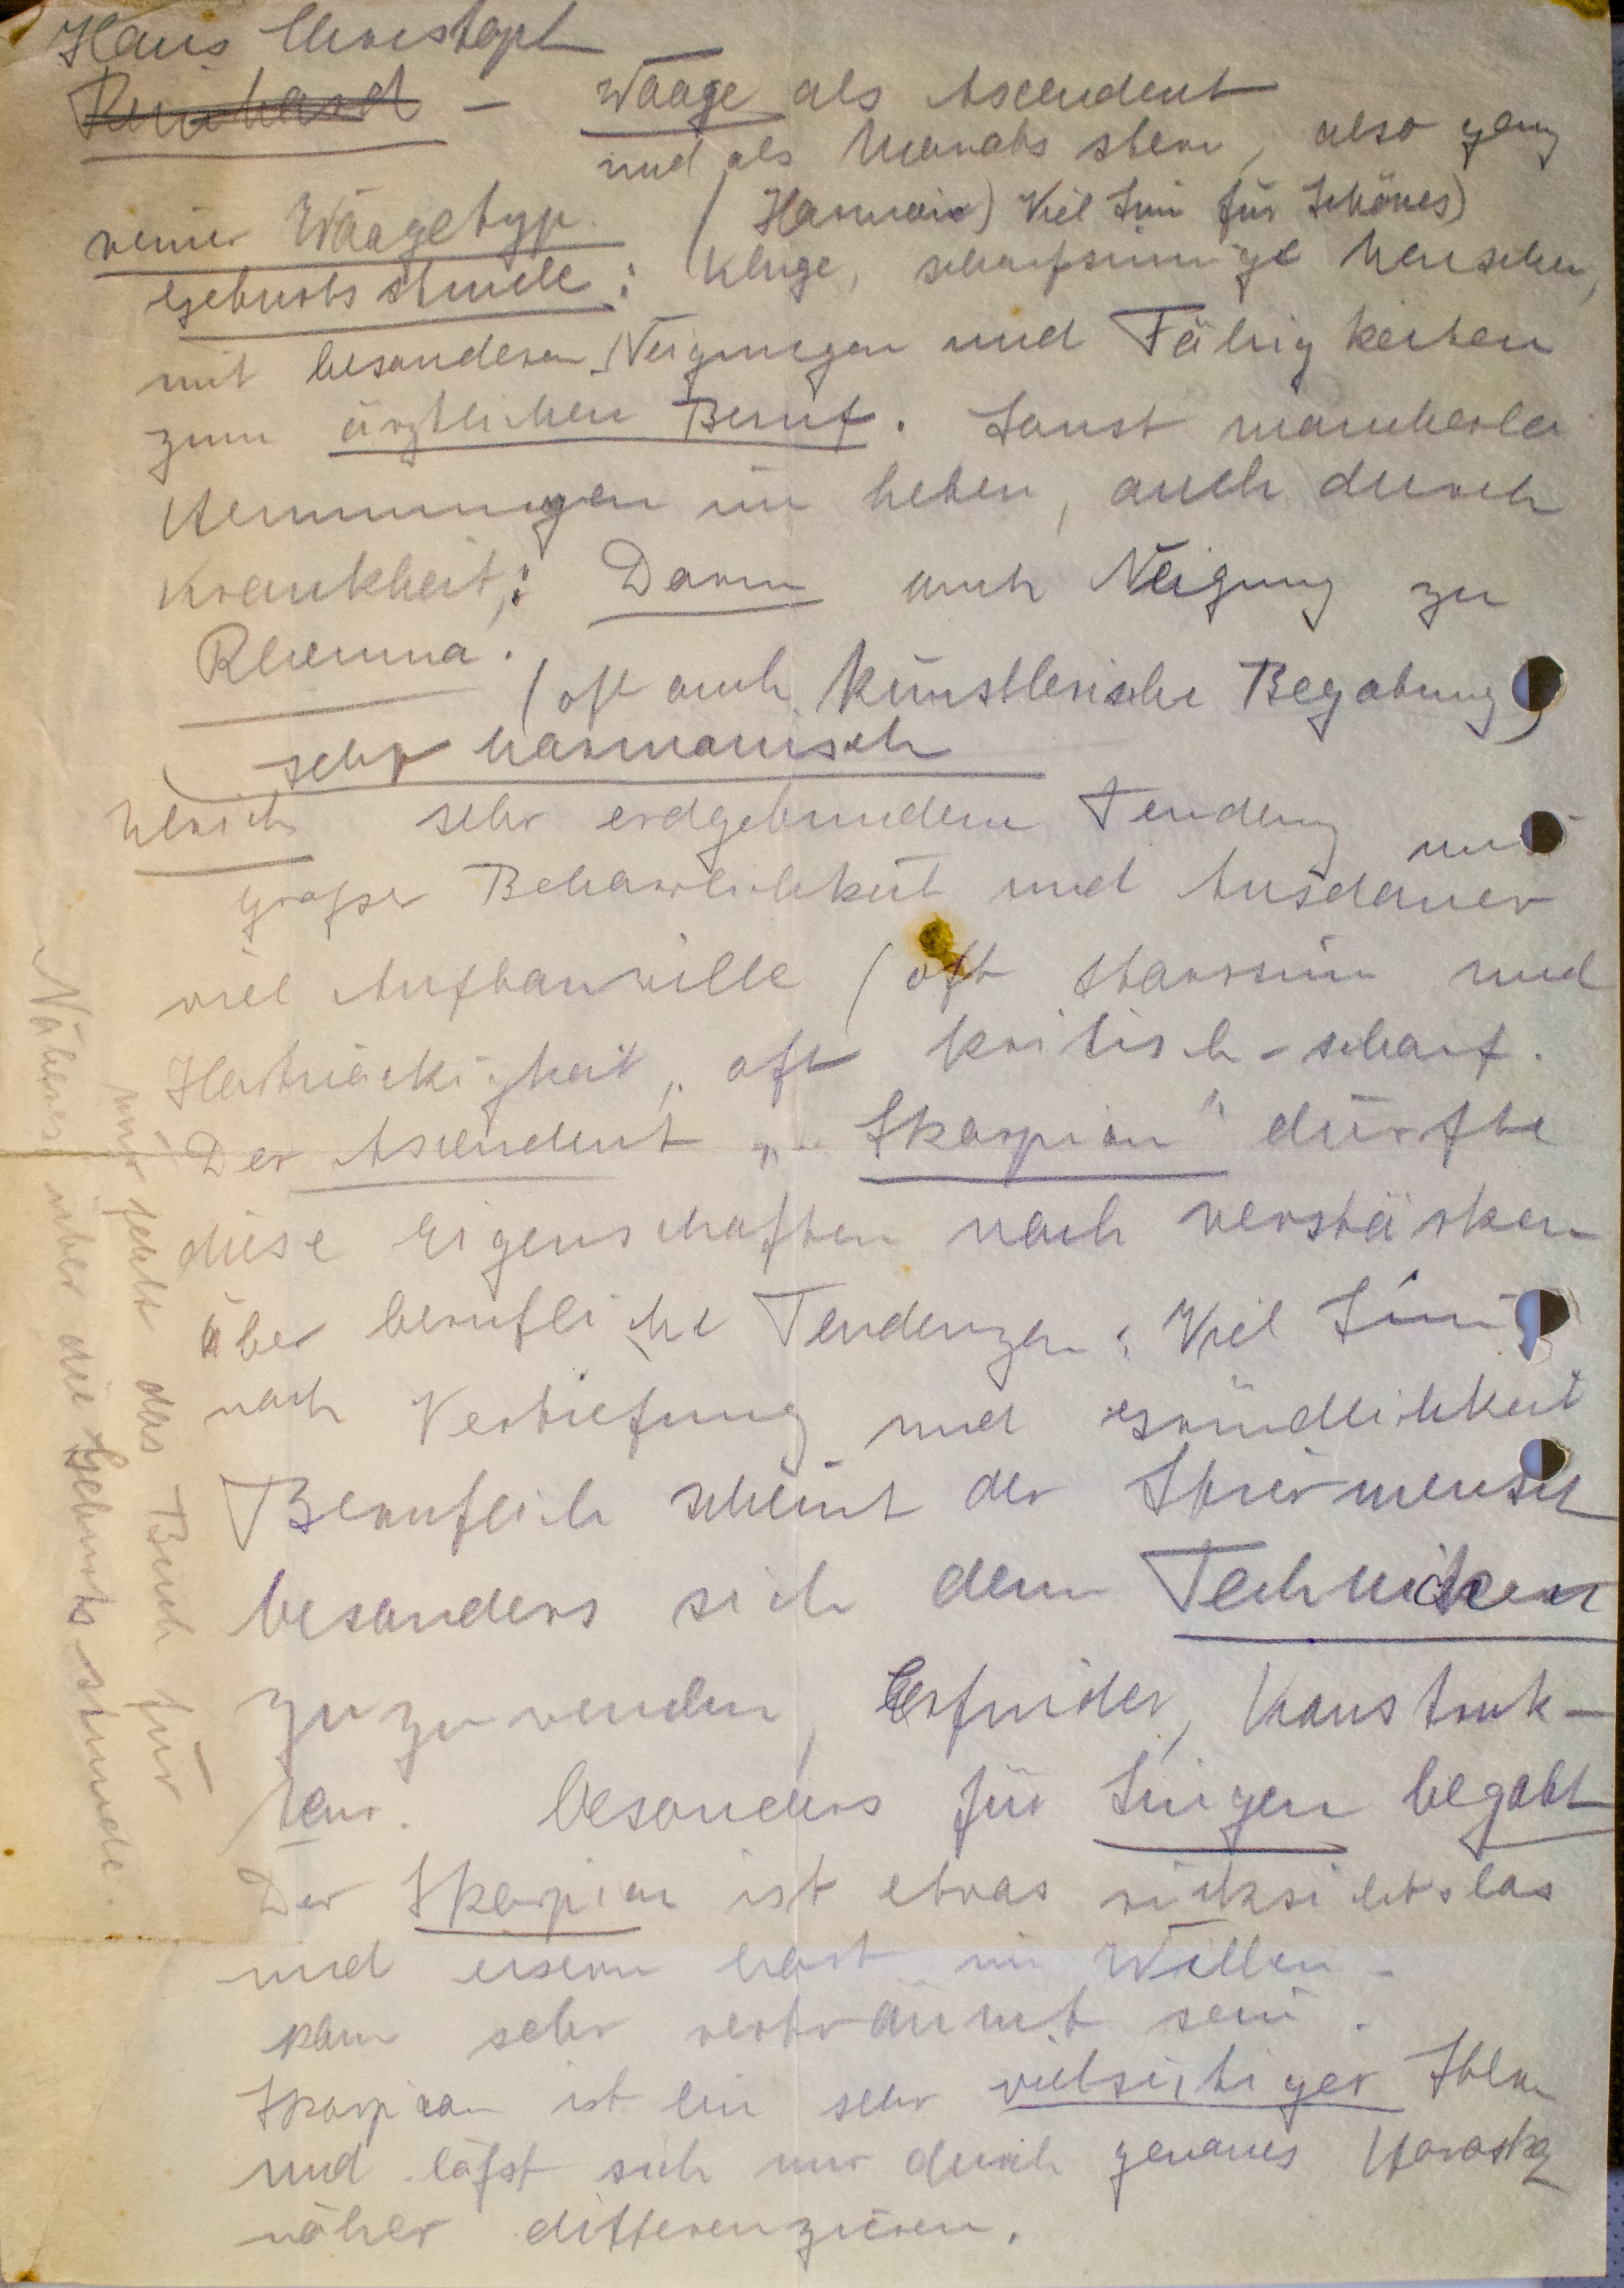 Hans Christoph
Reinhard – Waage als Ascendent
und als Monatsstern, also ganz
reiner Waagetyp. (Harmonie) Viel Sinn für Schönes)
Geburtsstunde: Kluge, scharfsinnige Menschen,
mit besonderen Neigungen und Fähigkeiten
zum ärztlichen Beruf. Sonst mancherlei
Hemmungen im Leben, auch durch
Krankheit,: Darm auch Neigung zu
Rheuma.
(oft auch künstlerische Begabung)
sehr harmonisch
Ulrich sehr erdgebundene Tendenz mit
großer Beharrlichkeit und Ausdauer
viel Aufbauwille (oft Starrsinn und
Hartnäckigkeit, oft kritisch-scharf.
Der Ascendent „Skorpion" dürfte
diese Eigenschaften noch verstärken
über berufliche Tendenzen: Viel Sinn
nach Vertiefung und Gründlichkeit
Beruflich scheint der Stiermensch
besonders sich dem Techniker
zuzuwenden, Erfinder, Konstruk-
teur. besonders für Singen begabt
Der Skorpion ist etwas rücksichtslos
und eisern hart im Willen.
kann sehr verträumt sein.
Skorpion ist ein sehr vielseitiger Stern
und läßt sich nur durch genaues Horoskop
näher differenzieren.
Näheres über die Geburtsstunde.
mir fehlt das Buch für